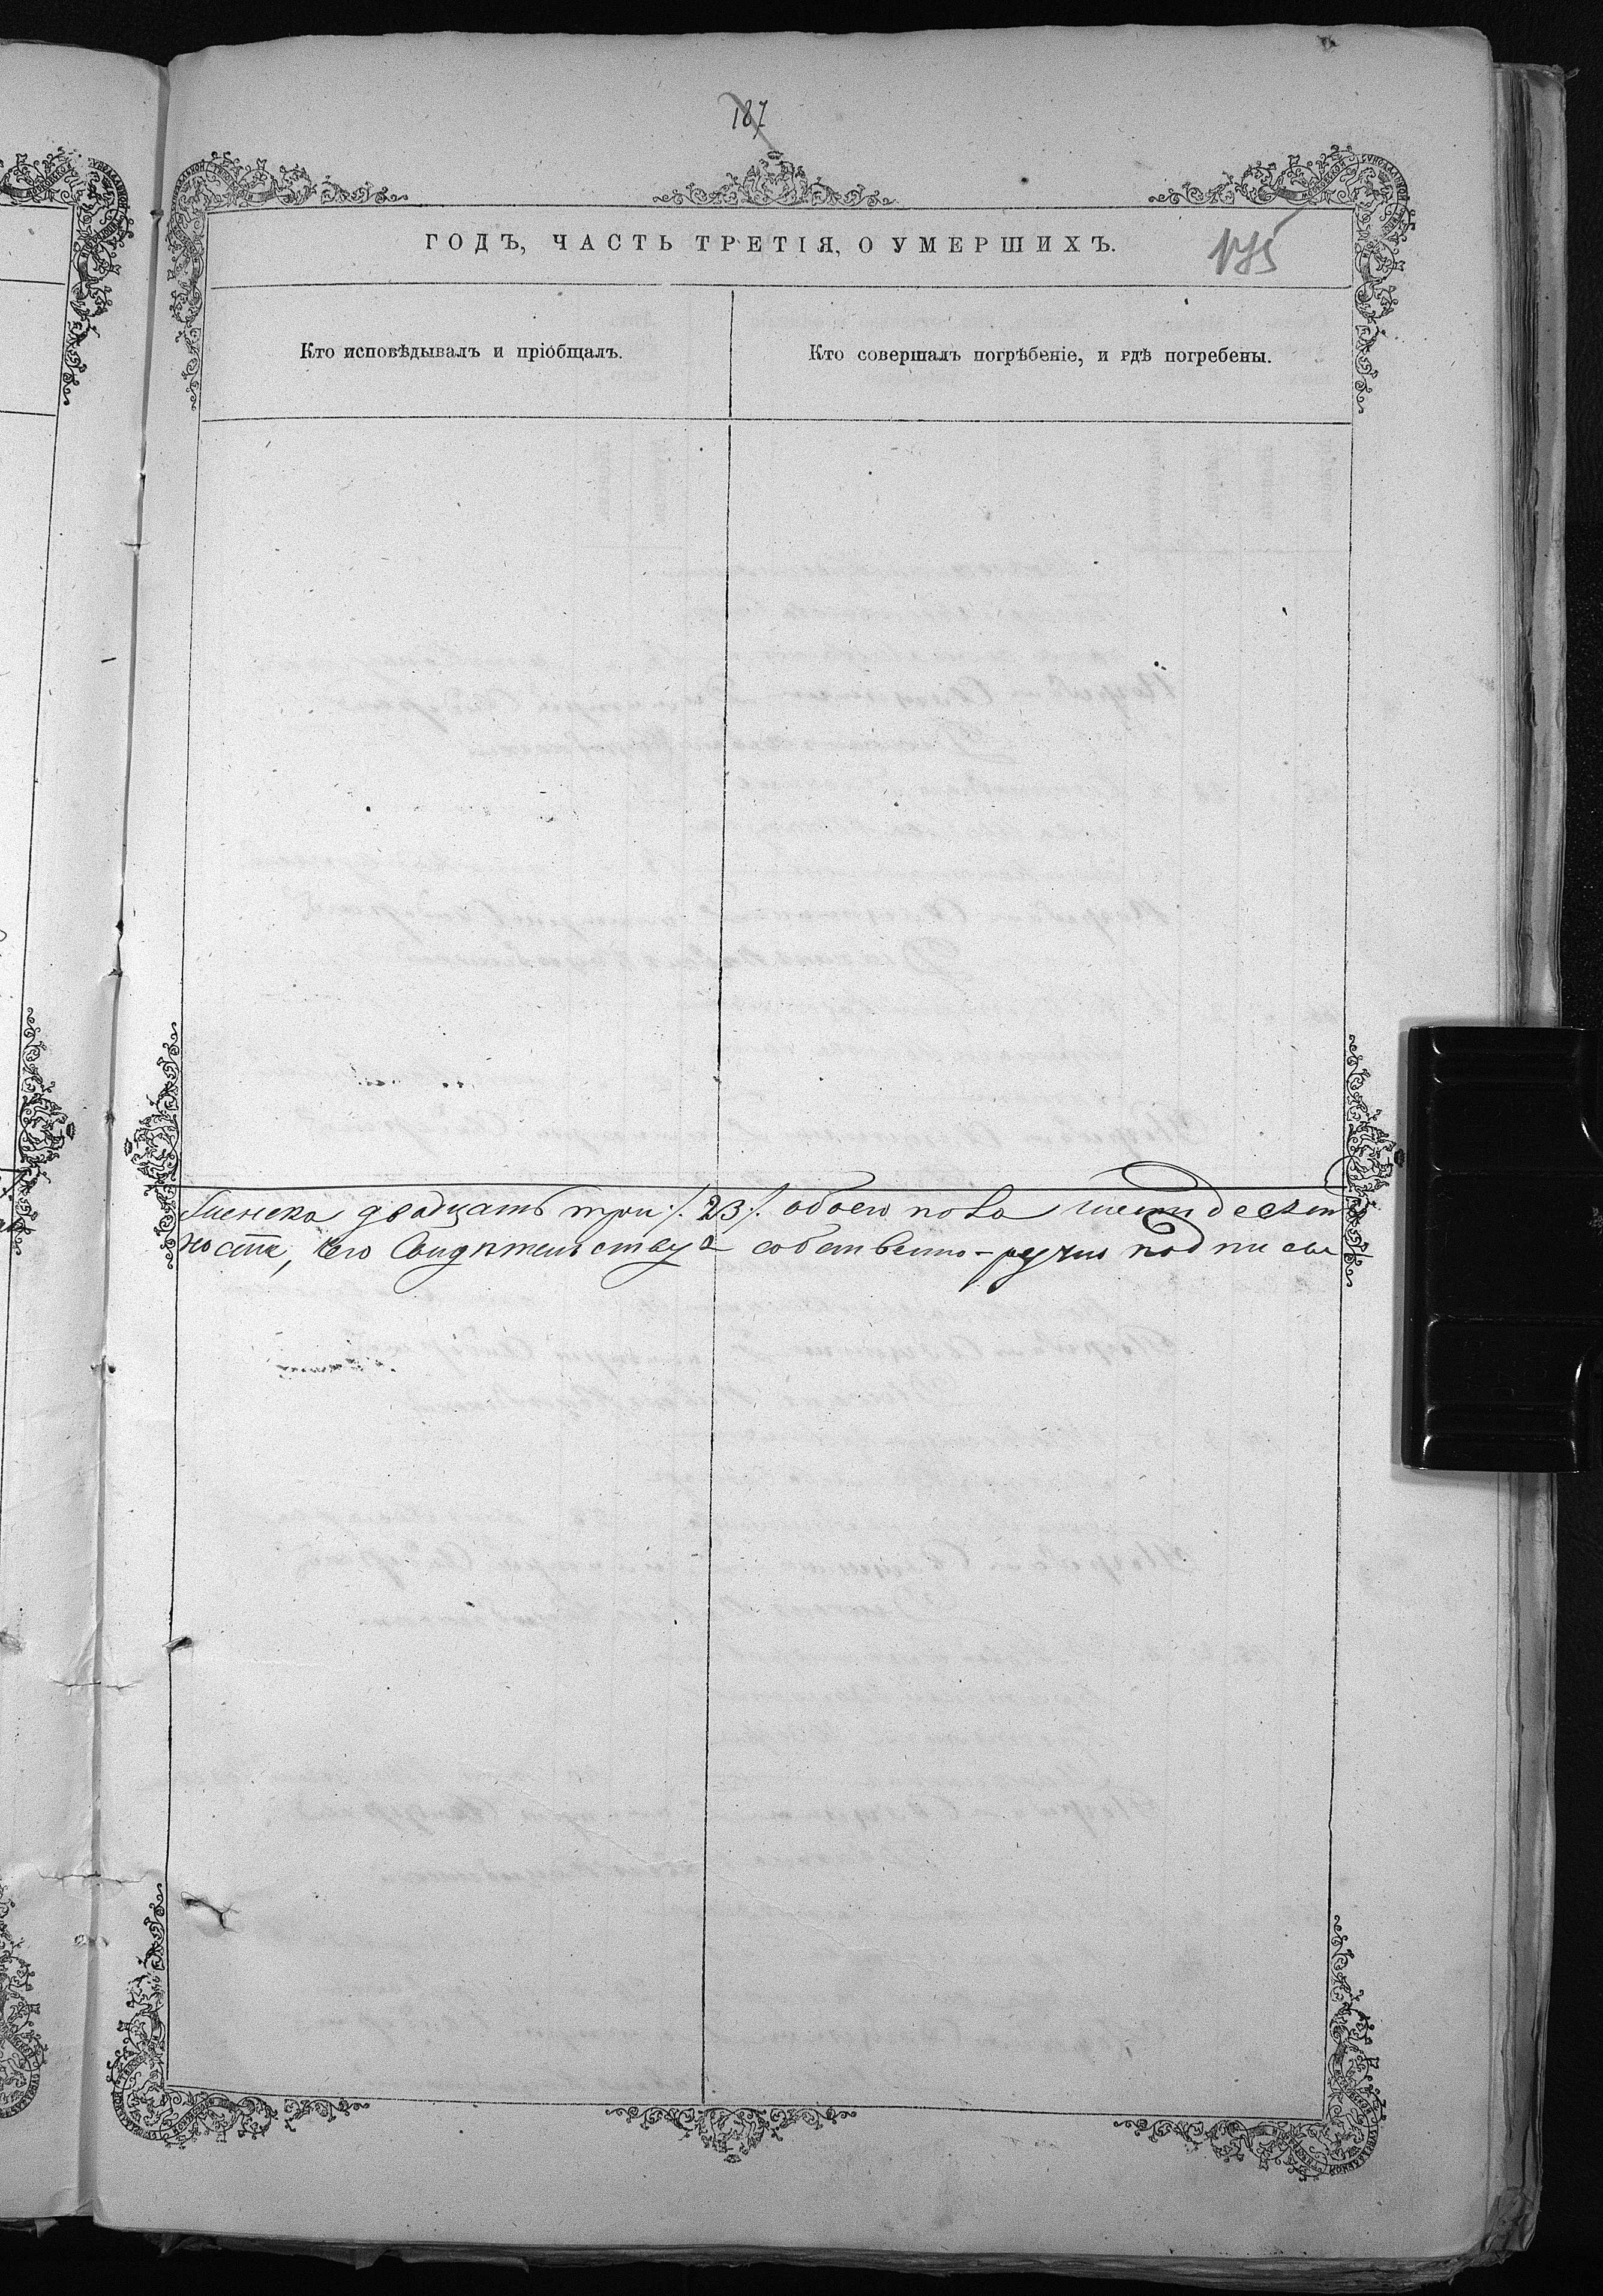 187
ГОДЪ, ЧАСТЬ ТРЕТІЯ, О УМЕРШИХЪ.
175
Кто исповѣдывалъ и пріобщалъ.
Кто совершалъ погрѣбеніе, и гдѣ погребены.
женска двадцать три /. 23 /. обоего пола шестьдесят
ности, чего Свидѣтельствуя собственно-ручно подписы